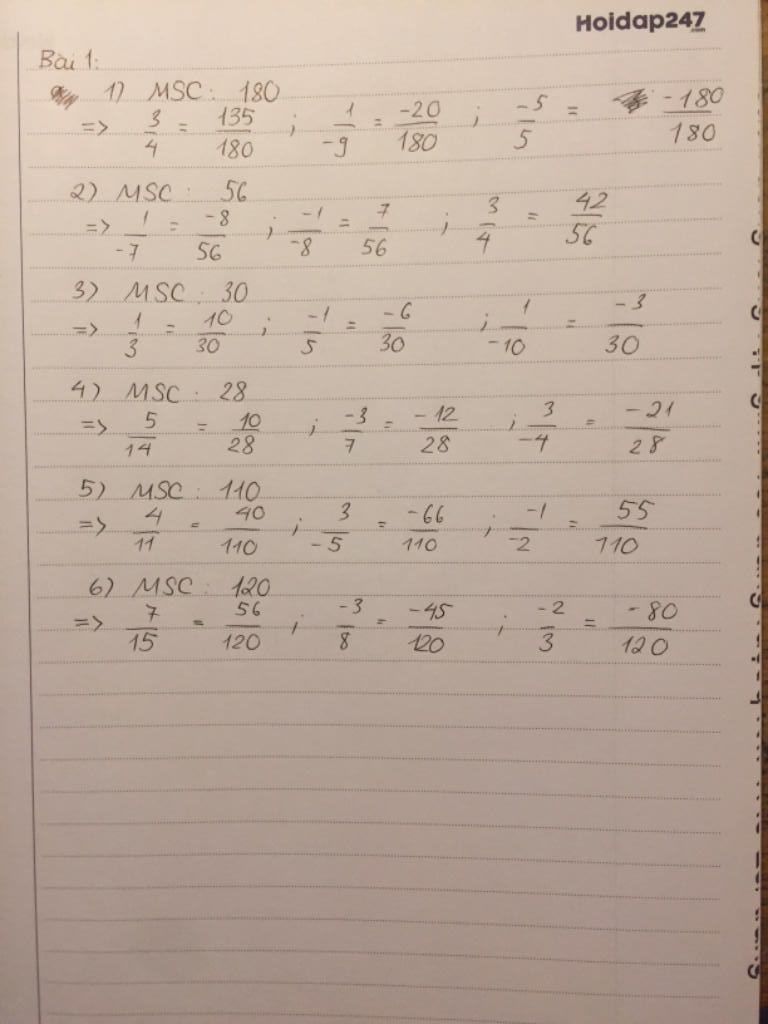 Hoidap247
.com
Bài 1:
1) MSC: 180
=> 3/4 = 135/180 ; 1/-9 = -20/180 ; -5/5 = -180/180
2) MSC: 56
=> 1/-7 = -8/56 ; -1/-8 = 7/56 ; 3/4 = 42/56
3) MSC: 30
=> 1/3 = 10/30 ; -1/5 = -6/30 ; 1/-10 = -3/30
4) MSC: 28
=> 5/14 = 10/28 ; -3/7 = -12/28 ; 3/-4 = -21/28
5) MSC: 110
=> 4/11 = 40/110 ; 3/-5 = -66/110 ; -1/-2 = 55/110
6) MSC: 120
=> 7/15 = 56/120 ; -3/8 = -45/120 ; -2/3 = -80/120